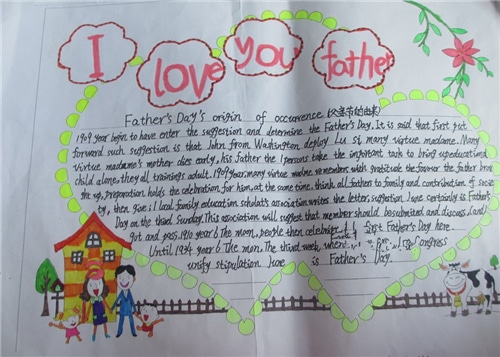 I love you father
Father's Day's origin of occurrence (父亲节的由来)
1909 year begin to have enter the suggestion and determine the Father's Day. It is said that first put
forward such suggestion is that John from Washington, deploy Lu si many virtue madame. Many
virtue madame's mother dies early, his father the 1 persons take the important task to bring up educational
child alone, they all trainings adult. 1909 year, many virtue madame remembers with gratitude the favour the father bring
me up, preparation holds the celebration for him, at the same time, think all father to family and contribution of socie
ty, then give i local family education scholat's association writes the letter, suggestion June certainly is Father's
Day on the third Sunday. This association will suggest that member should be submited and discuss, and
got and pass. 1910 year 6 The mon, people then celebrate first Father's Day here.
Until 1934 year 6 The mon. The third week, when Congress
unify stipulation June is Father's Day.